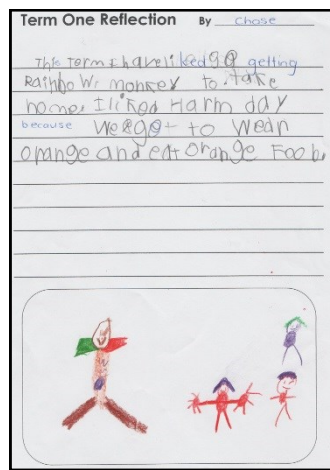 Term One Reflection By Chase
This Term I have liked getting
Rainbow monkey to take
home. I liked Harm day
because we got to wear
orange and eat orange Food